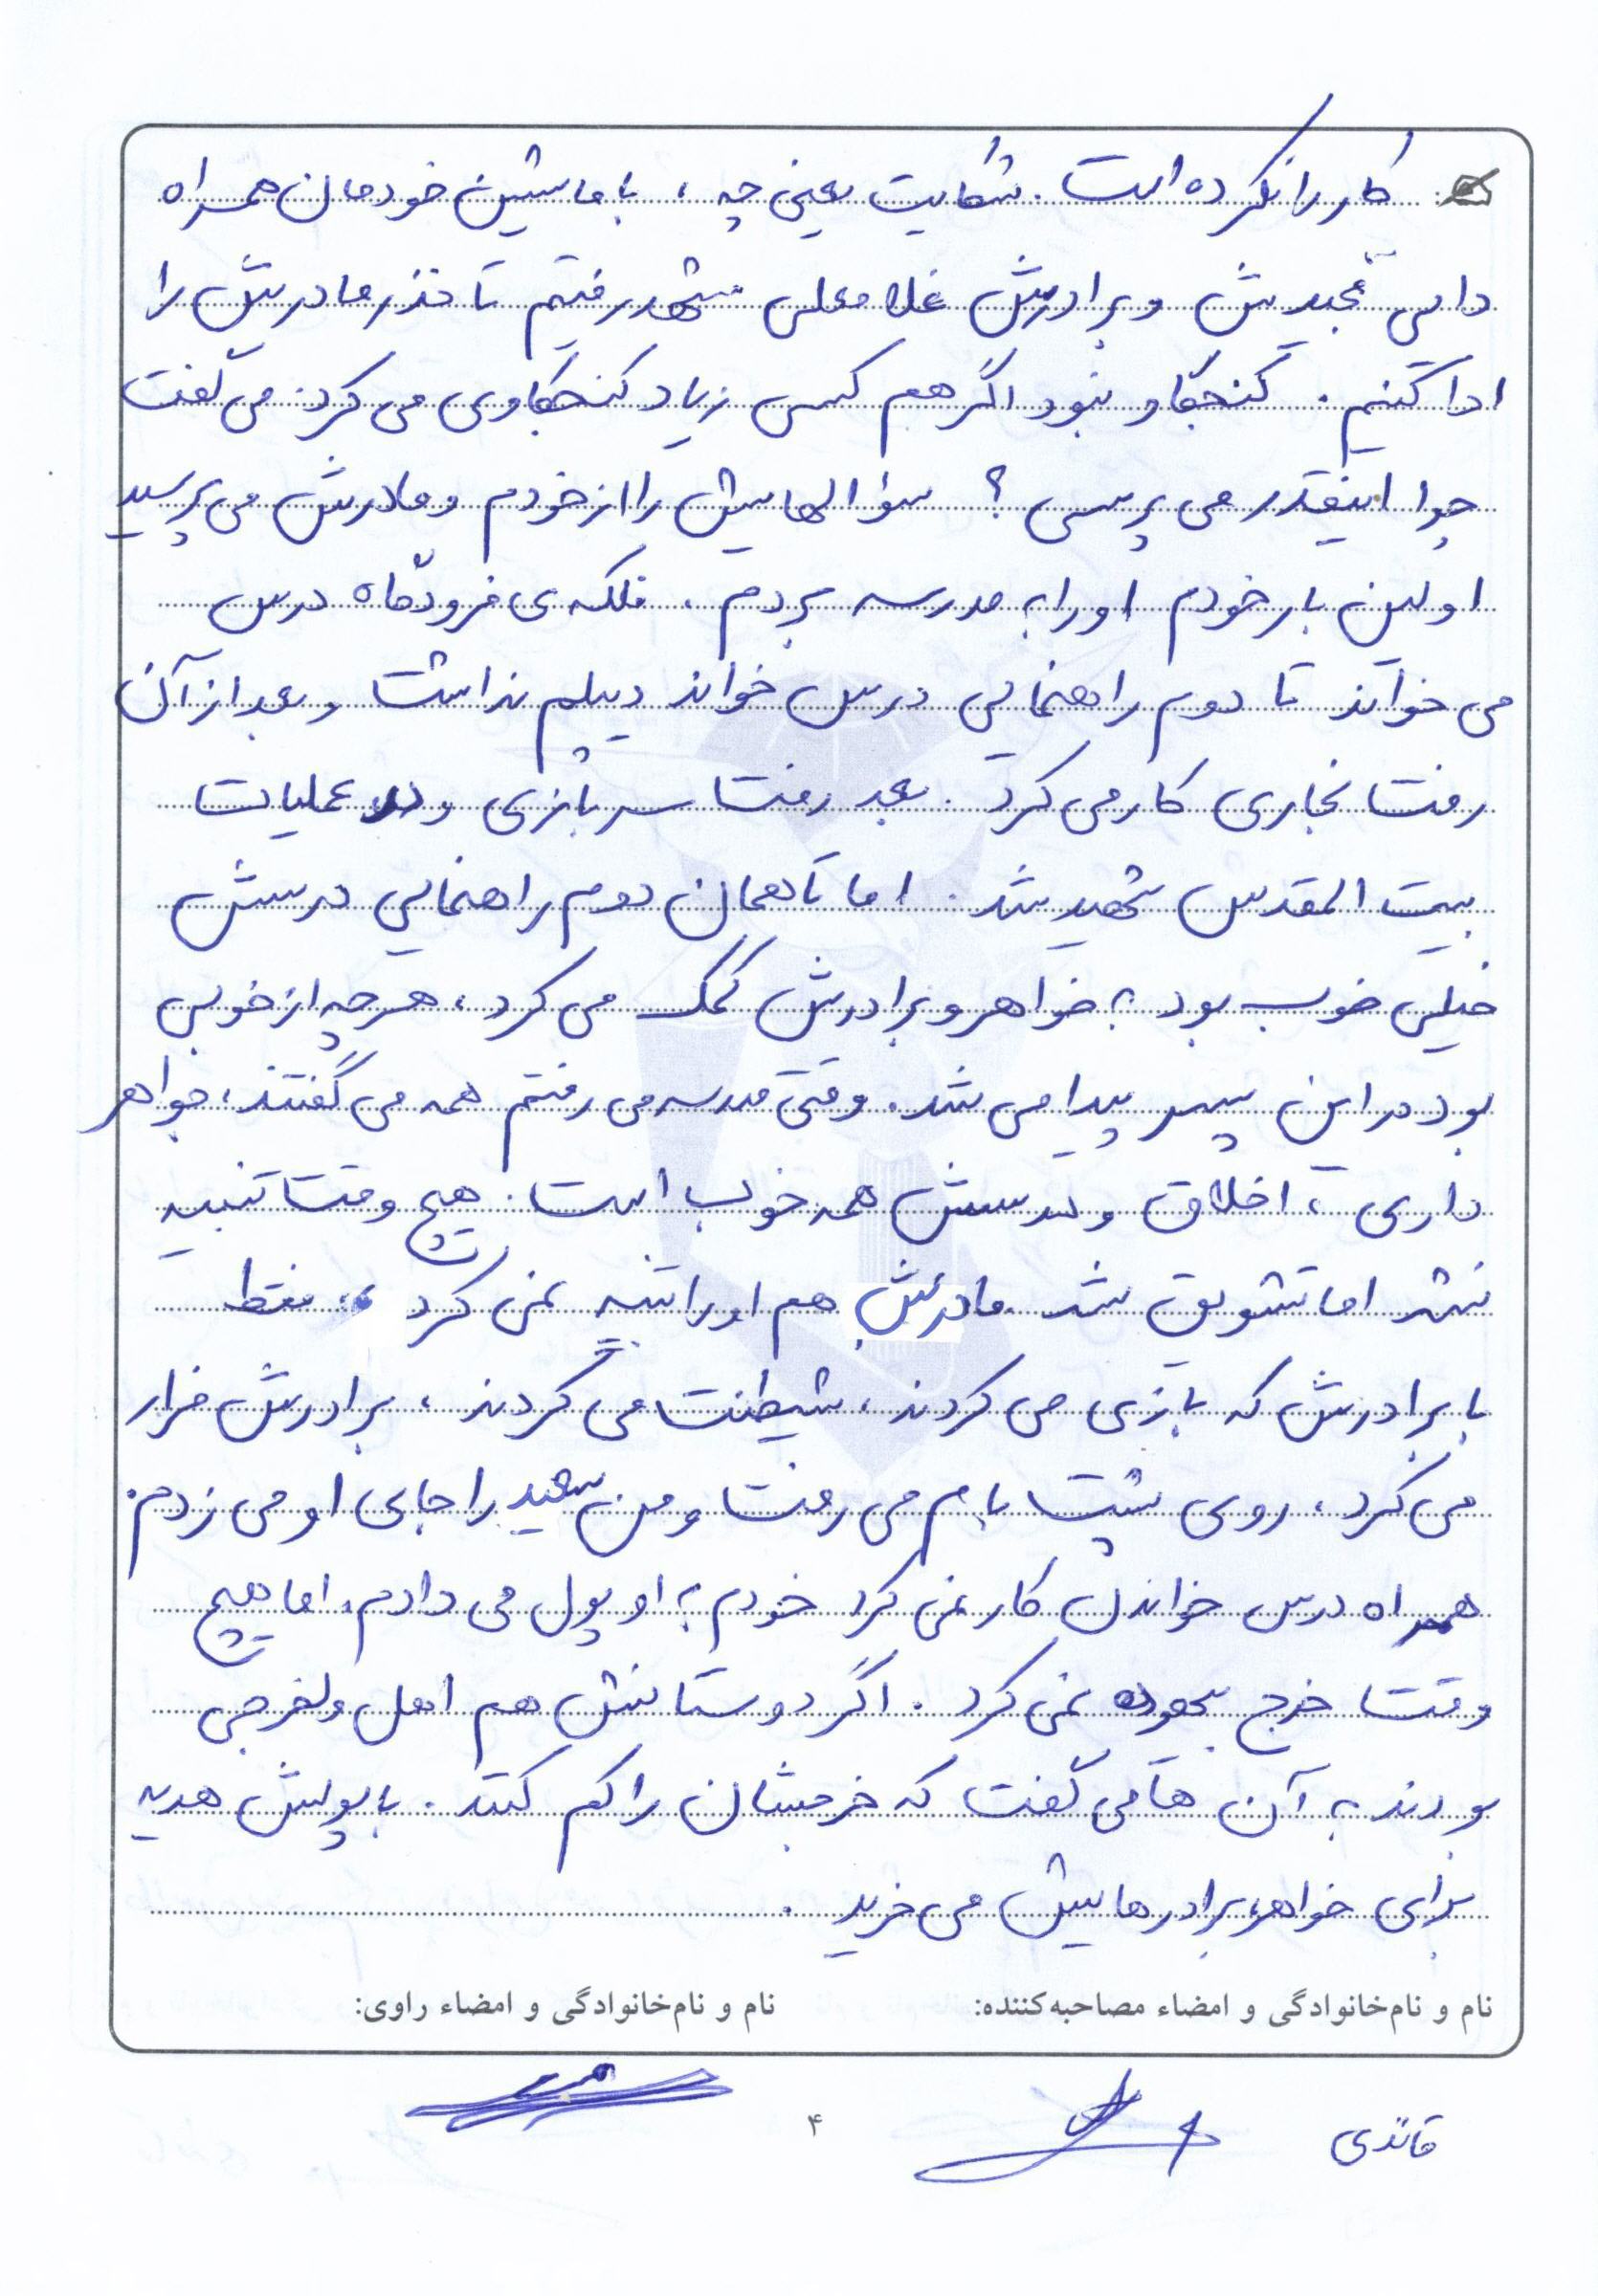 کار را نکرده است. شکایت یعنی چه، با ماشین خودمان همراه
دایی مجیدش و برادرش غلامعلی مشهد رفتیم تا نذر مادرش را
ادا کنیم. کنجکاو نبود اگر هم کسی زیاد کنجکاوی می کرد. می گفت
چرا اینقدر می پرسی؟ سؤالهایش را از خودم و مادرش می پرسید
اولین بار خودم او را به مدرسه بردم. فلکه ی فرودگاه درس
می خواند تا دوم راهنمایی درس خواند دیپلم نداشت و بعد از آن
رفت نجاری کار می کرد. بعد رفت سربازی و در عملیات
بیت المقدس شهید شد. اما تا همان دوم راهنمایی درسش
خیلی خوب بود به خواهر و برادرش کمک می کرد، هر چه از خوبی
بود در این پسر پیدا می شد. وقتی مدرسه می رفتم همه می گفتند، جواهر
داری، اخلاق و درسش همه خوب است. هیچ وقت تنبیه
نشد اما تشویق شد مادرش هم او را تنبیه نمی کرد، فقط
با برادرش که بازی می کردند، شیطنت می کردند، برادرش فرار
می کرد، روی پشت بام می رفت و من سعید را جای او می زدم.
همراه درس خواندن کار نمی کرد خودم به او پول می دادم. اما هیچ
وقت خرج بیهوده نمی کرد. اگر دوستانش هم اهل ولخرجی
بودند به آن ها می گفت که خرجشان را کم کنند. با پولش هدیه
برای خواهر، برادرهایش می خرید.
نام و نام‌خانوادگی و امضاء مصاحبه‌کننده: نام و نام‌خانوادگی و امضاء راوی:
۴